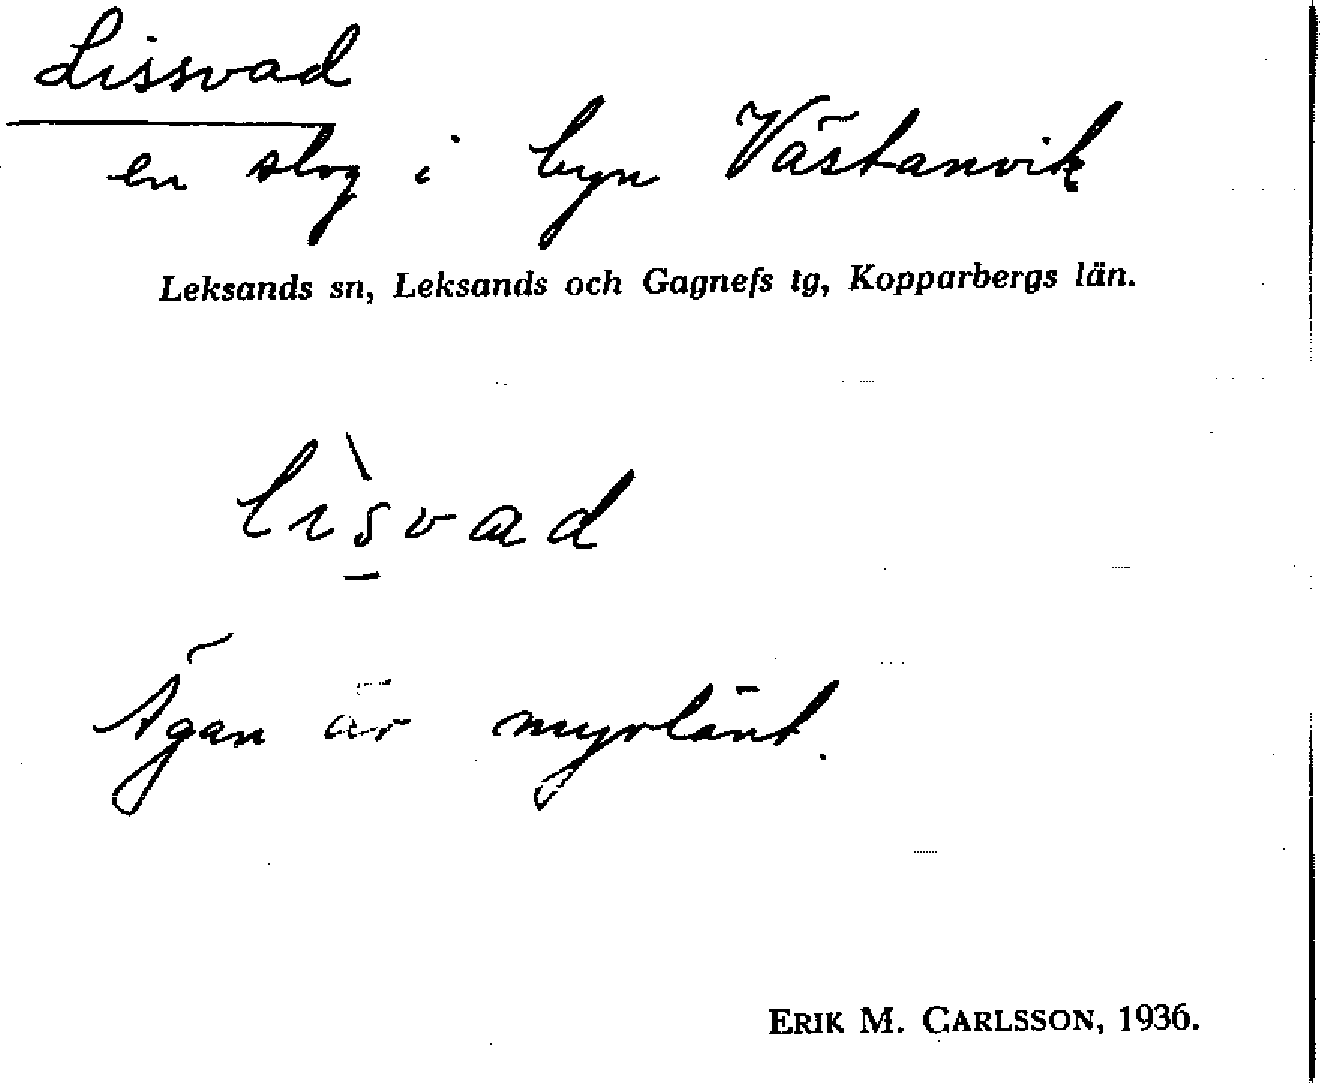 Lissvad
en slog i byn Västanvik
Leksands sn, Leksands och Gagnefs tg, Kopparbergs län.
lìs̠vad
Ägan är myrlänt.
ERIK M. CARLSSON, 1936.